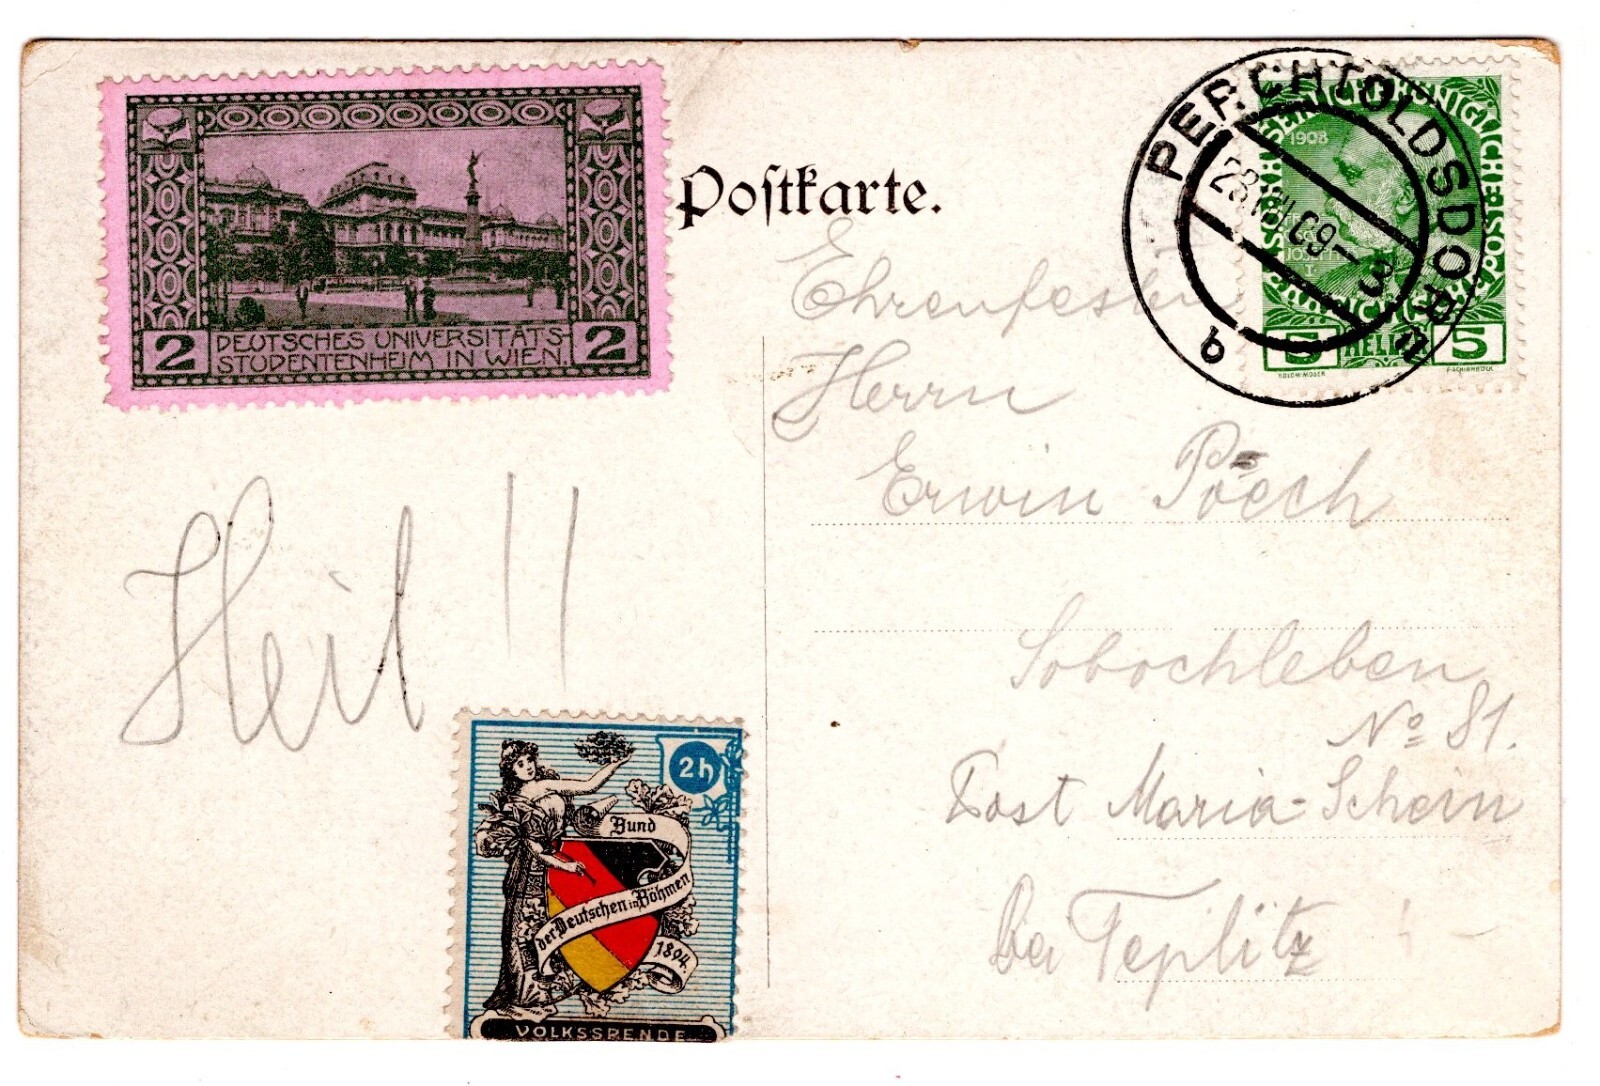 2 DEUTSCHES UNIVERSITÄTS- 2
STUDENTENHEIM IN WIEN.
Postkarte.
PERCHTOLDSDORF
28 09-3
b
1908
5 HELLER 5
KOLO MOSER
F. SCHIRNBÖCK
Ehrenfesten
Herrn
Erwin Pöech
Sobochleben
No 81.
Post Maria-Schein
bei Teplitz
Heil !!
2h
Bund
der Deutschen in Böhmen
1894.
VOLKSSPENDE